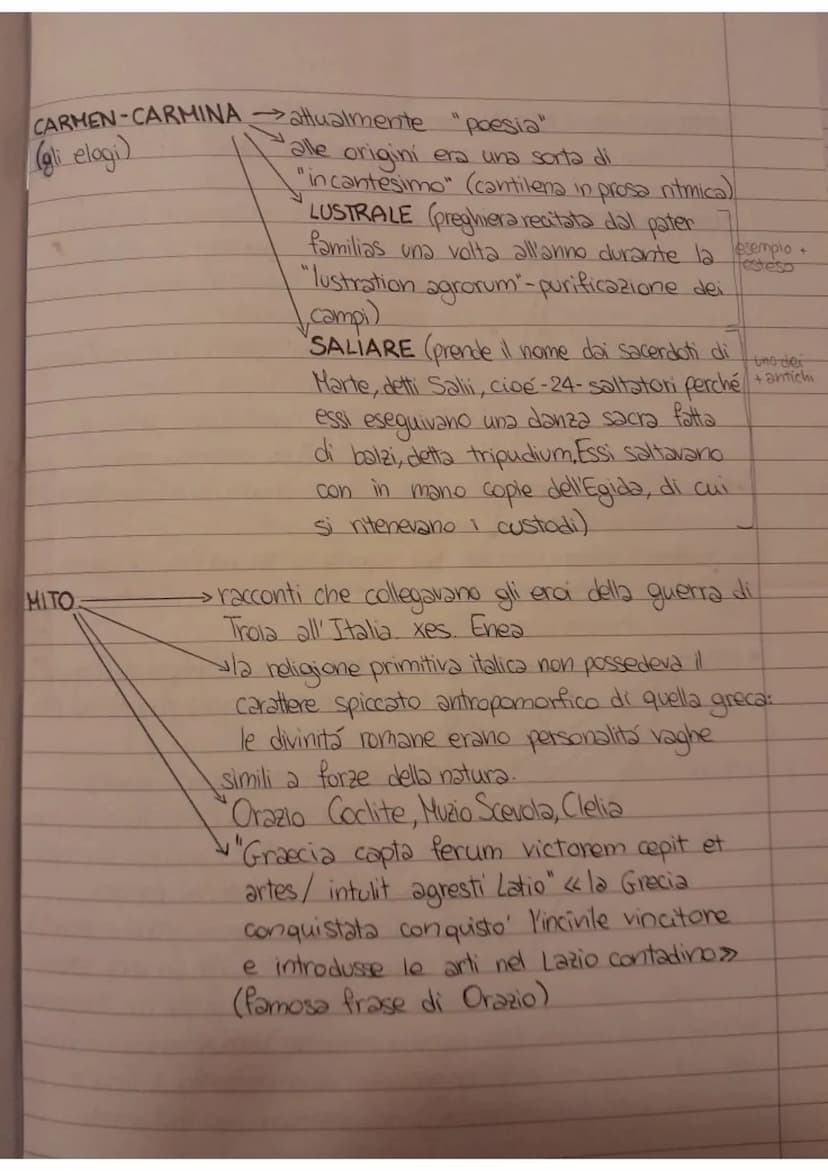 CARMEN-CARMINA → attualmente "poesia"
(gli elogi)
alle origini era una sorta di
"incantesimo" (cantilena in prosa ritmica)
LUSTRALE (preghiera recitata dal pater
familias una volta all'anno durante la
"lustration agrorum"-purificazione dei
campi)
esempio +
esteso
SALIARE (prende il nome dai sacerdoti di
Marte, detti Salii, cioé-24-saltatori perché
essi eseguivano una danza sacra fatta
di balzi, detta tripudium. Essi saltavano
con in mano copie dell'Egida, di cui
si ritenevano i custodi)
uno dei
+ antichi
MITO → racconti che collegavano gli eroi della guerra di
Troia all'Italia xes. Enea
la religione primitiva italica non possedeva il
carattere spiccato antropomorfico di quella greca:
le divinitá romane erano personalitá vaghe
simili a forze della natura.
Orazio Coclite, Muzio Scevola, Clelia
"Graecia capta ferum victorem cepit et
artes/ intulit agresti Latio" «la Grecia
conquistata conquisto' l'incivile vincitore
e introdusse le arti nel Lazio contadino»
(famosa frase di Orazio)